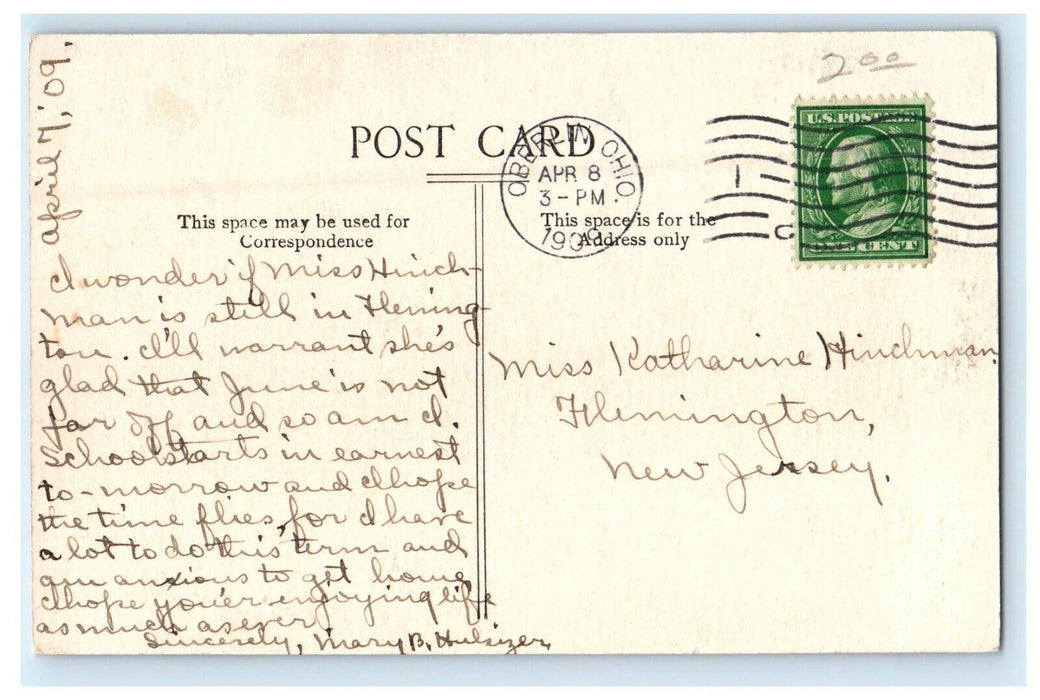 April 7, '09.
2.00
POST CARD
OBERLIN, OHIO.
APR 8
3-PM
1909
1
C
U.S. POSTAGE
ONE CENT
This space may be used for
Correspondence
This space is for the
Address only
I wonder if Miss Hinch-
man is still in Fleming-
ton. I'll warrant she's
glad that June is not
far off and so am I.
School starts in earnest
to-morrow and I hope
the time flies, for I have
a lot to do this term and
am anxious to get home
I hope you'er enjoying life
as much as ever
Sincerely, Mary B. Hulsizer
Miss Katharine Hinchman
Flemington,
New Jersey.